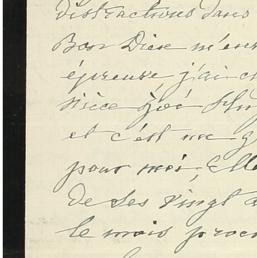 distractions dans
Bon Dieu m'en
épreuve j'ai
nièce
et c'est un g
pour moi, Elle
de ses vingt a
le mois proch